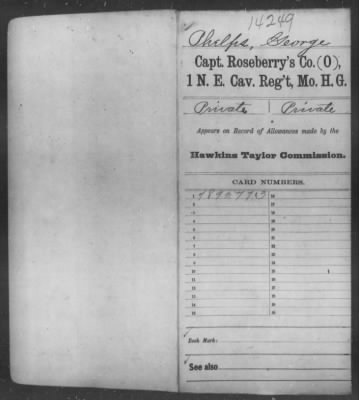 14249
Phelps, George
Capt. Roseberry's Co. (O),
1 N. E. Cav. Reg't, Mo. H. G.
Private | Private
Appears on Record of Allowances made by the
Hawkins Taylor Commission.
CARD NUMBERS.
1 16
2 17
3 18
4 19
5 20
6 21
7 22
8 23
9 24
10 25 1
11 26
12 27
13 28
14 29
15 30
Book Mark:
See also